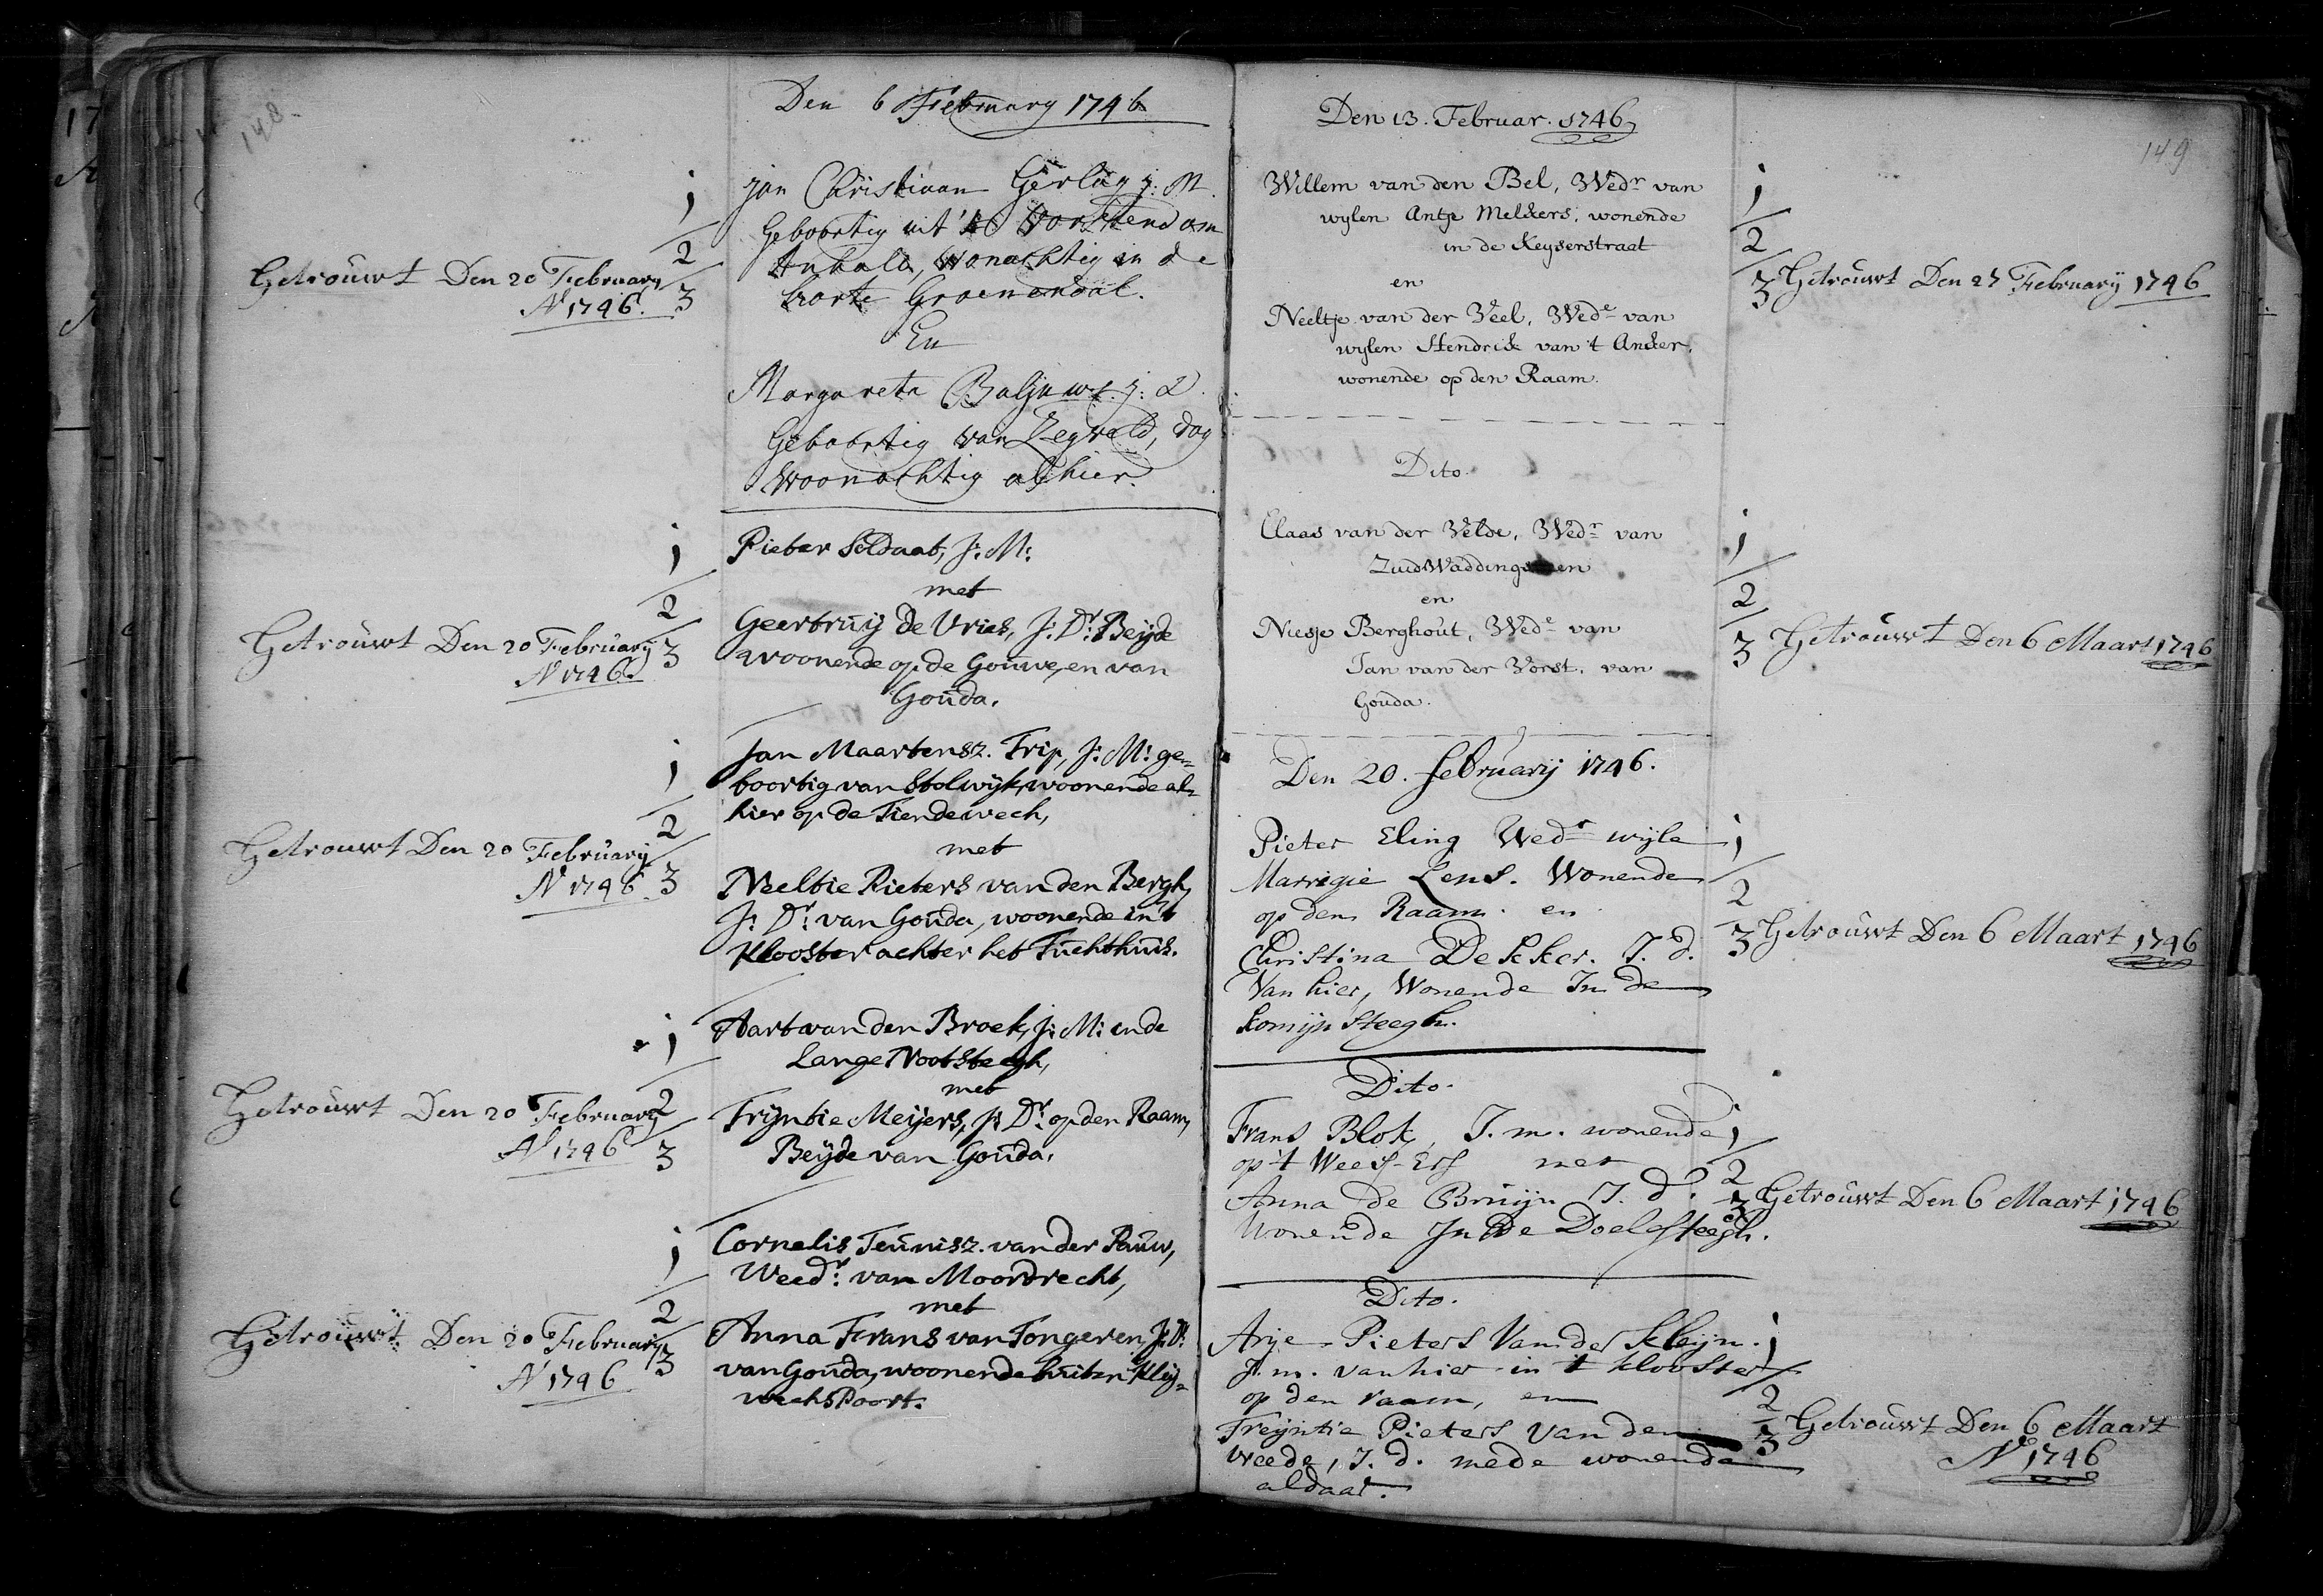 148.
Den 6 February 1746
Jan Christiaan Gerlag j: M.
Geboortig uit 't Vorstendom
Anhalt, wonachtig in de
korte Groenendaal.
En
Margareta Baljuwt. j: D.
Geboortig van Zegveld, dog
Woonachtig alhier.
1
2
3
Getrouwt Den 20 February
Ao 1746.
Pieter Soldaat, J: M:
met
Geertruij de Vries, J: Dr: Beijde
woonende op de Gouwe, en van
Gouda.
1
2
3
Getrouwt Den 20 February
Ao 1746.
Jan Maartensz. Trip, J: M: ge=
boortig van Stolwijk, woonende al=
hier op de Tiendewech,
met
Neeltie Pieters van den Bergh,
J: Dr: van Gouda, woonende in 't
Klooster achter het Tuchthuis.
1
2
3
Getrouwt Den 20 February
Ao 1746.
Aart van den Broek, J: M: in de
Lange Nootsteegh,
met
Trijntie Meijers, J: Dr: op den Raam,
Beijde van Gouda.
1
2
3
Getrouwt Den 20 February
Ao 1746
Cornelis Teunisz. van der Pauw,
Weedr: van Moordrecht,
met
Anna Frans van Tongeren, J: D:
van Gouda, woonende buiten Kleij=
wechs Poort.
1
2
3
Getrouwt Den 20 February
Ao 1746
149
Den 13. Februar. 1746
Willem van den Bel, Wedr van
wylen Antje Melkers, wonende
in de Keyserstraat
en
Neeltje van der Veel, Wede van
wylen Hendrik van 't Anker,
wonende op den Raam.
1
2
3 Getrouwt Den 27 February 1746
Dito.
Claas van der Velde, Wedr van
Zuid Waddingsveen
en
Niesje Berghout, Wede van
Jan van der Vorst, van
Gouda.
1
2
3 Getrouwt Den 6 Maart 1746
Den 20. februarij 1746.
Pieter Eling Wedr wijle
Marrigie Lens. Wonende
op den Raam. en
Christina Dekker. J. d.
Van hier, Wonende In de
Komijn Steegh.
1
2
3 Getrouwt Den 6 Maart 1746
Dito.
Frans Blok, J. m. wonende
op 't Wees-Erf met
Anna de Bruijn J. d.
Wonende In de Doelesteegh.
1
2
3 Getrouwt Den 6 Maart 1746
Dito.
Arije Pieters Van der Kleijn.
J. m. van hier in 't klooster
op den raam, en
Treijntie Pieters Van den
weede, J. d. mede wonende
aldaar.
1
2
3 Getrouwt Den 6 Maart
Ao 1746